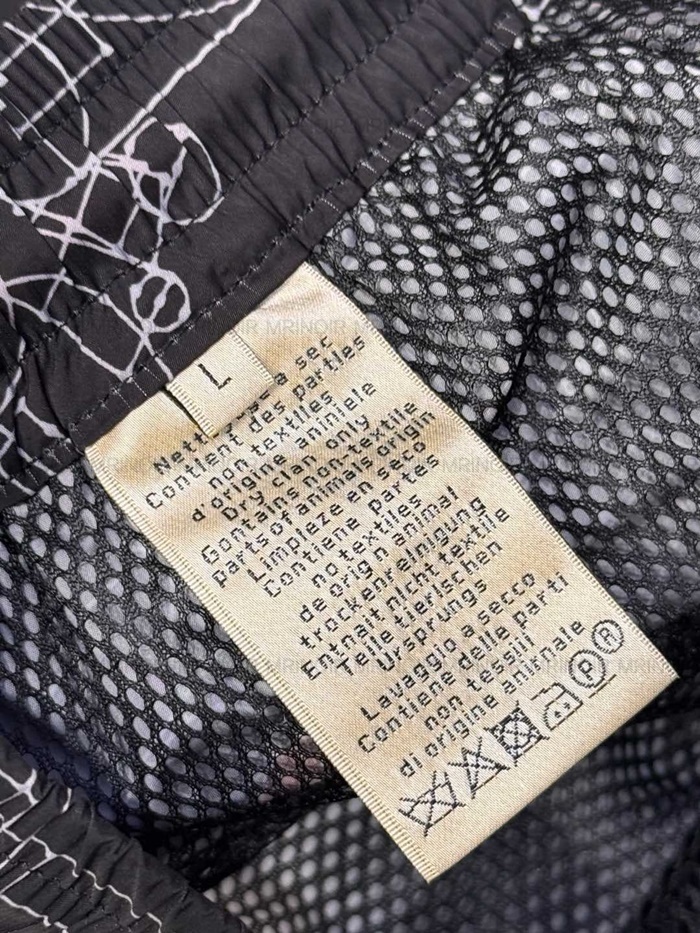 L
Nettoyage a sec
Contient des partles
non-textiles
d'origine aniniele
Dry clan only
Gontains non-textile
parts of animals origin
Limpieze en seco
Contiene partes
no textiles
de origin animal
trockenreinigung
Entnalt nicht textile
Teile tierischen
Ursprungs
Lavaggio a secco
Contiene delle parti
non tessili
di origine animale
P R
MRINOIR MRINOIR